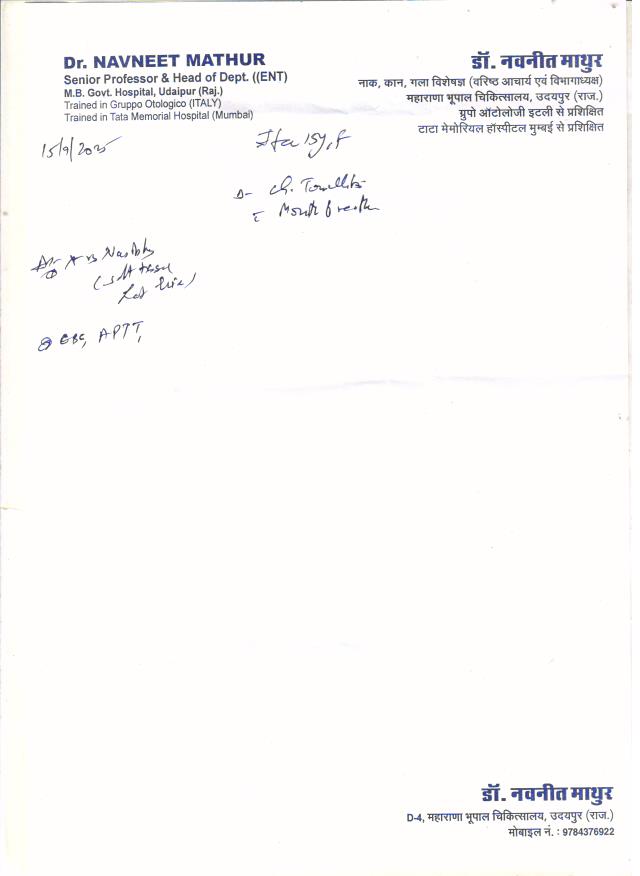 Dr. NAVNEET MATHUR
Senior Professor & Head of Dept. ((ENT)
M.B. Govt. Hospital, Udaipur (Raj.)
Trained in Gruppo Otologico (ITALY)
Trained in Tata Memorial Hospital (Mumbai)
डॉ. नवनीत माथुर
नाक, कान, गला विशेषज्ञ (वरिष्ठ आचार्य एवं विभागाध्यक्ष)
महाराणा भूपाल चिकित्सालय, उदयपुर (राज.)
ग्रुपो ऑटोलोजी इटली से प्रशिक्षित
टाटा मेमोरियल हॉस्पीटल मुम्बई से प्रशिक्षित
15/9/2025
15y, f
Ch.
Mouth breath
(soft tissue
CBC, APTT,
डॉ. नवनीत माथुर
D-4, महाराणा भूपाल चिकित्सालय, उदयपुर (राज.)
मोबाइल नं. : 9784376922